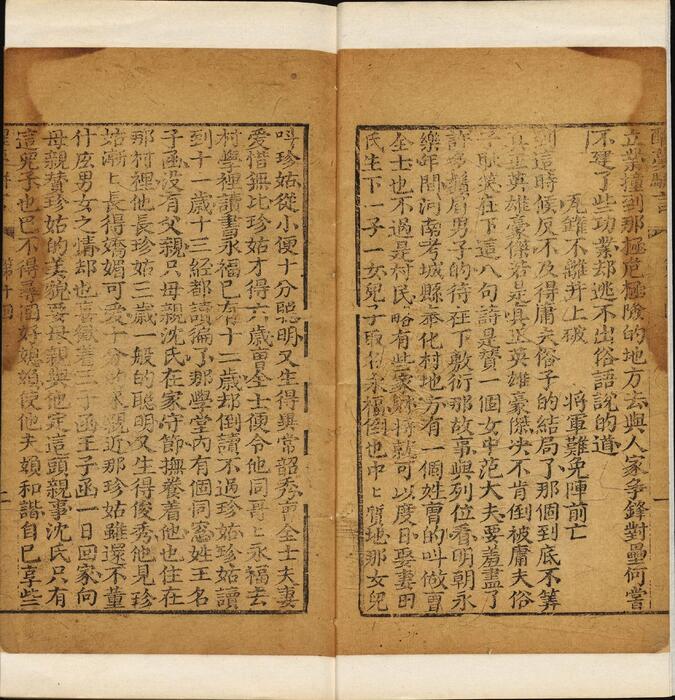 立業撞到那極危極險的地方去與人家爭鋒對壘何嘗
不建了些功業却逃不出俗語說的道
瓦鑵不離井上破　將軍難免陣前亡
到這時候反不及得庸夫俗子的結局了那個到底不算
真正英雄豪傑若是真正英雄豪傑决不肯倒被庸夫俗
子恥笑在下這八句詩是贊一個女中范大夫要羞盡了
許多鬚眉男子的待在下敷衍那故事與列位看明朝永
樂年間河南考城縣奉化村地方有一個姓曹的叫做曹
全士也不過是村民略有些家將就可以度日娶妻田
氏生下一子一女兒子取名永福倒也中匕質地那女兒
叫珍姑從小便十分聰明又生得異常韶秀曹全士夫妻
愛惜無比珍姑才得六歲曹全士便令他同哥匕永福去
村學裡讀書永福已有十二歲却倒讀不過珍姑珍姑讀
到十一歲十三經都讀徧了那學堂內有個同窻姓王名
子函沒有父親只母親沈氏在家守節撫養着他也住在
那村裡他長珍姑三歲一般的聰明又生得俊秀他見珍
姑漸匕長得嬌媚可愛十分的來親近那珍姑雖還不董
什庅男女之情却也喜歡着王子函王子函一日回家向
母親贊珍姑的美貌要母親與他定這頭親事沈氏只有
這兒子也巴不得尋個好媳婦使他夫婦和諧自已享些
第十回
二